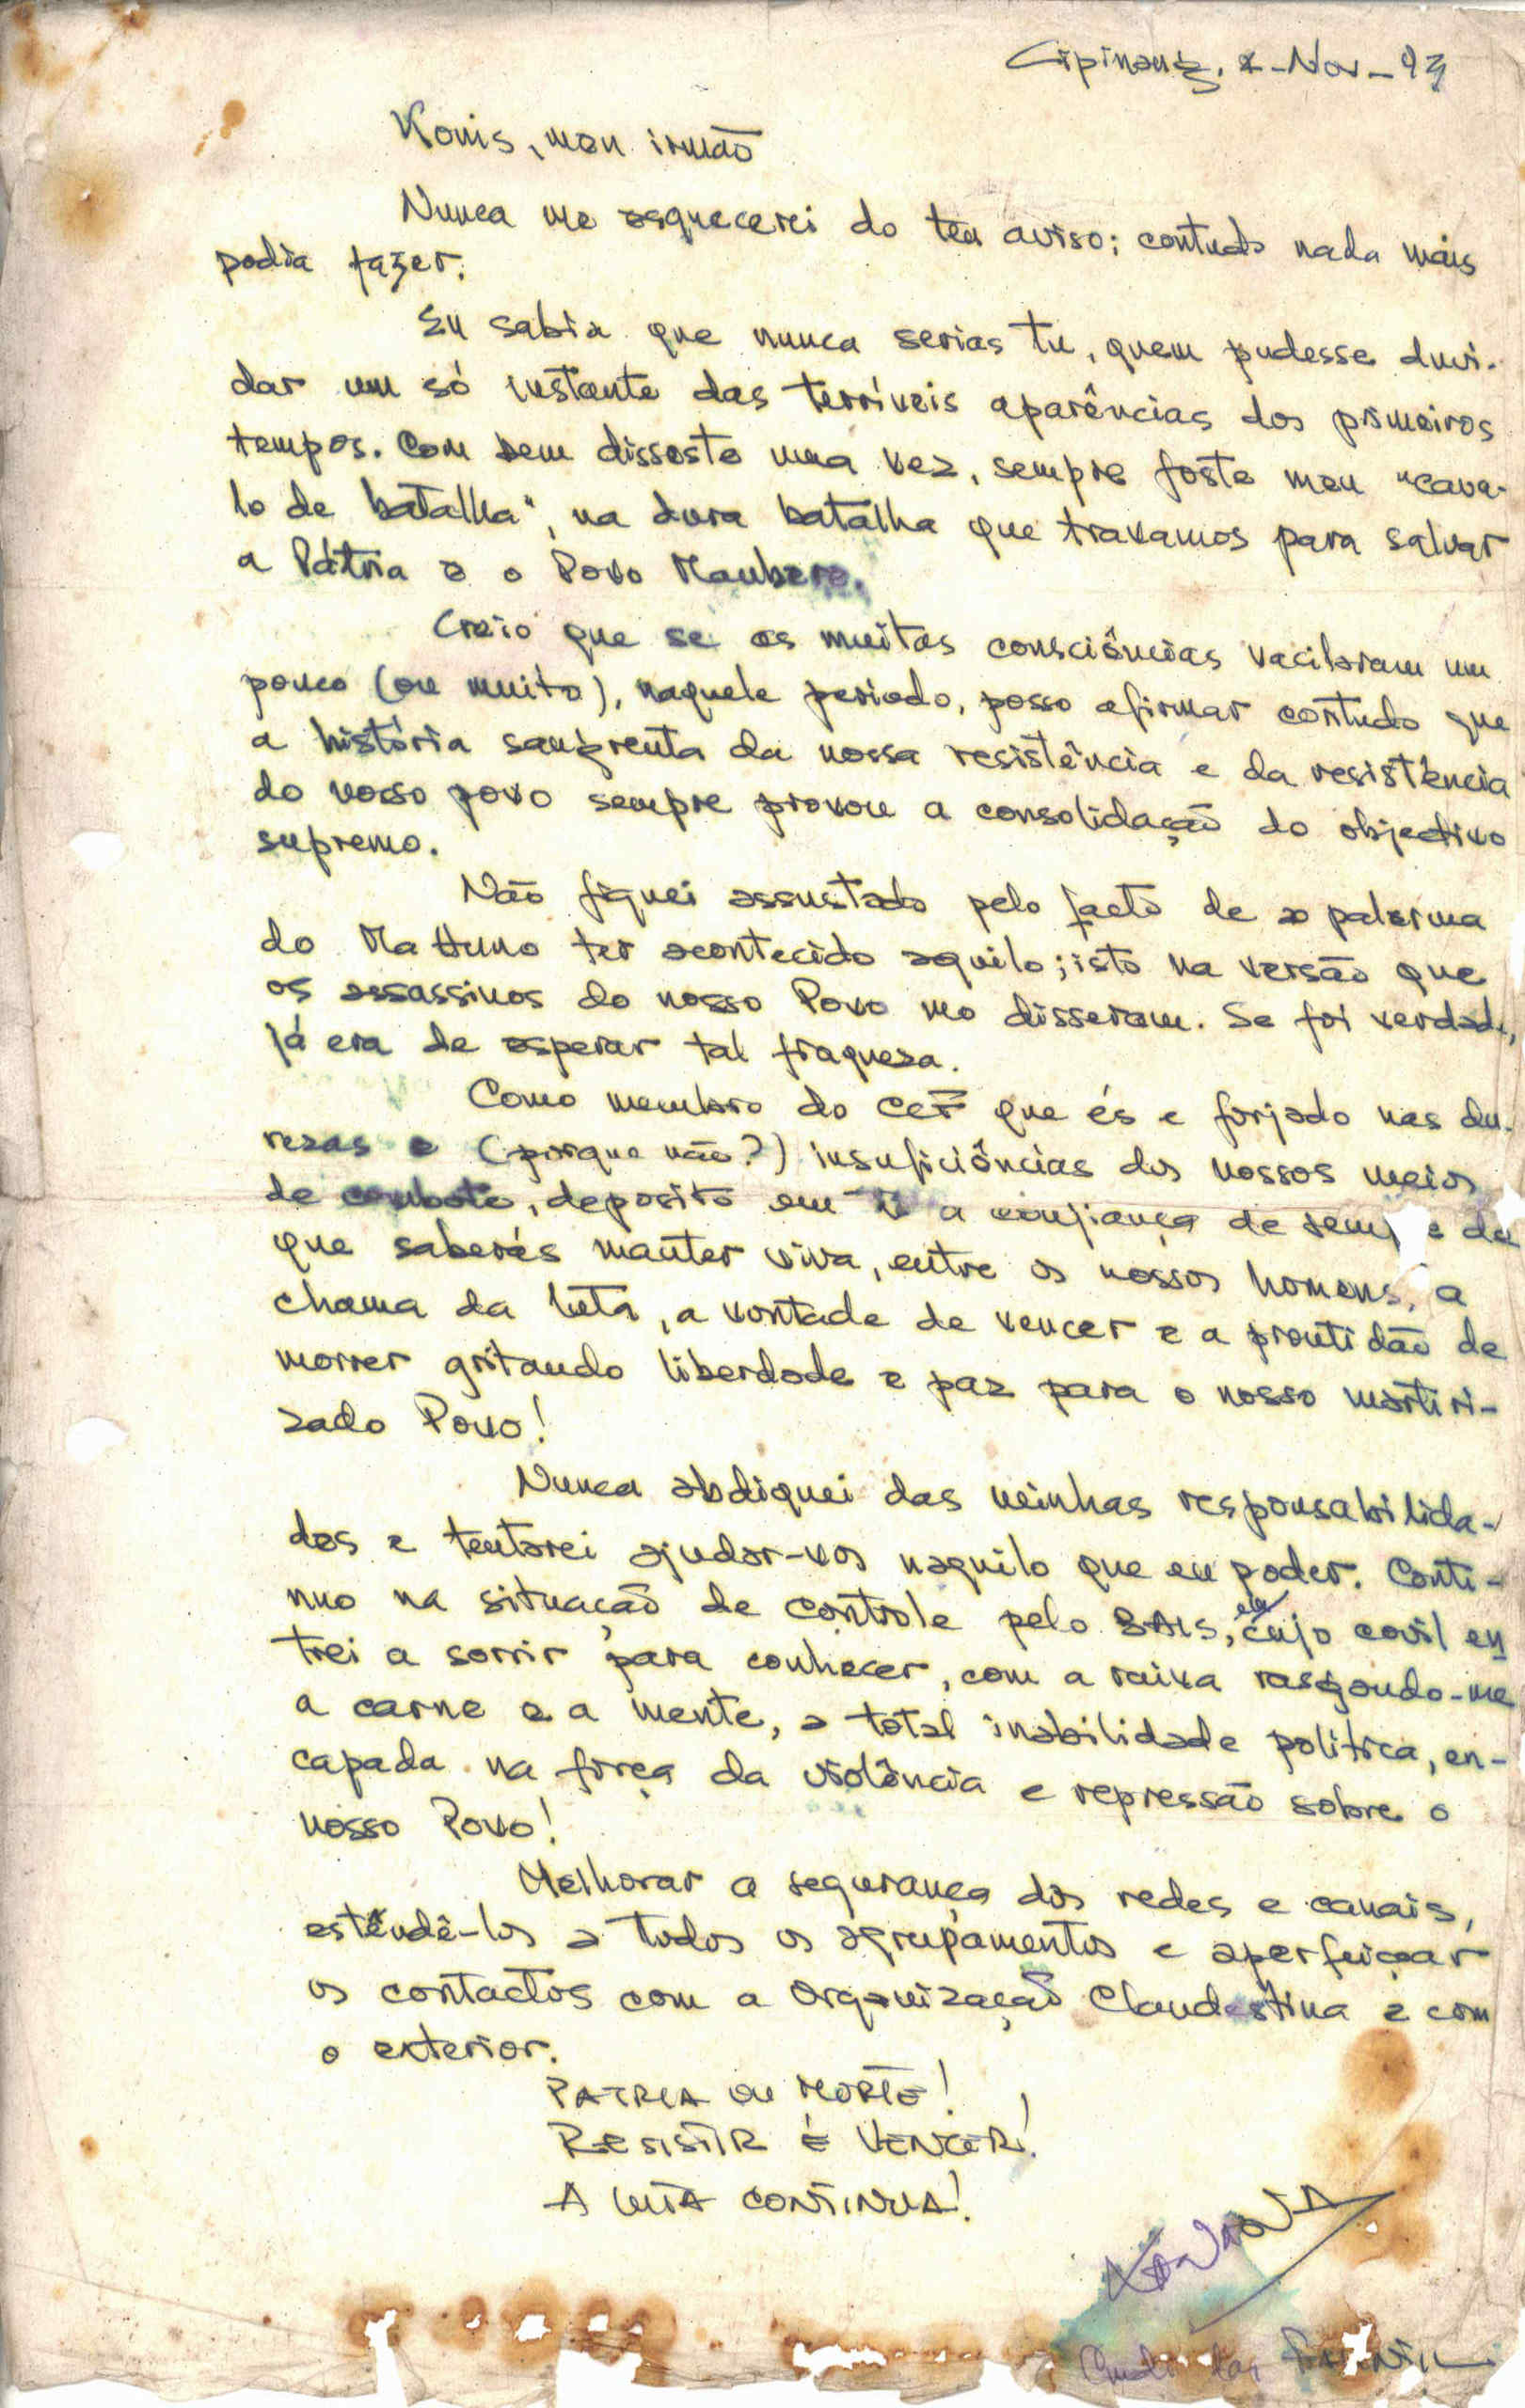 Cipinang, 2-Nov-93
Konis, meu irmão
Nunca me esquecerei do teu aviso; contudo nada mais
podia fazer.
Eu sabia que nunca serias tu, quem pudesse duvi-
dar um só instante das terríveis aparências dos primeiros
tempos. Com bem disseste uma vez, sempre foste meu "cava-
lo de batalha", na dura batalha que travamos para salvar
a Pátria e o Povo Maubere.
Creio que se as muitas consciências vacilaram um
pouco (ou muito), naquele periodo, posso afirmar contudo que
a história sangrenta da nossa resistência e da resistência
do nosso povo sempre provou a consolidação do objectivo
supremo.
Não fiquei assustado pelo facto de ao palerma
do Ma Huno ter acontecido aquilo; isto na versão que
os assassinos do nosso Povo mo disseram. Se foi verdade,
já era de esperar tal fraqueza.
Como membro do CEF que és e forjado nas du-
rezas e (porque não?) insuficiências dos nossos meios
de combate, deposito em ti a confiança de sempre de
que saberás manter viva, entre os nossos homens, a
chama da luta, a vontade de vencer e a prontidão de
morrer gritando liberdade e paz para o nosso martiri-
zado Povo!
Nunca abdiquei das minhas responsabilida-
des e tentarei ajudar-vos naquilo que eu poder. Conti-
nuo na situação de controle pelo BAIS, em cujo covil en
trei a sorrir para conhecer, com a raiva rasgando-me
a carne e a mente, a total inabilidade politica, en-
capada na força da violência e repressão sobre o
nosso Povo!
Melhorar a segurança das redes e canais,
estendê-los a todos os agrupamentos e aperfeiçoar
os contactos com a Organização Clandestina e com
o exterior.
PATRIA OU MORTE!
RESISTIR É VENCER!
A LUTA CONTINUA!
das FALINTIL